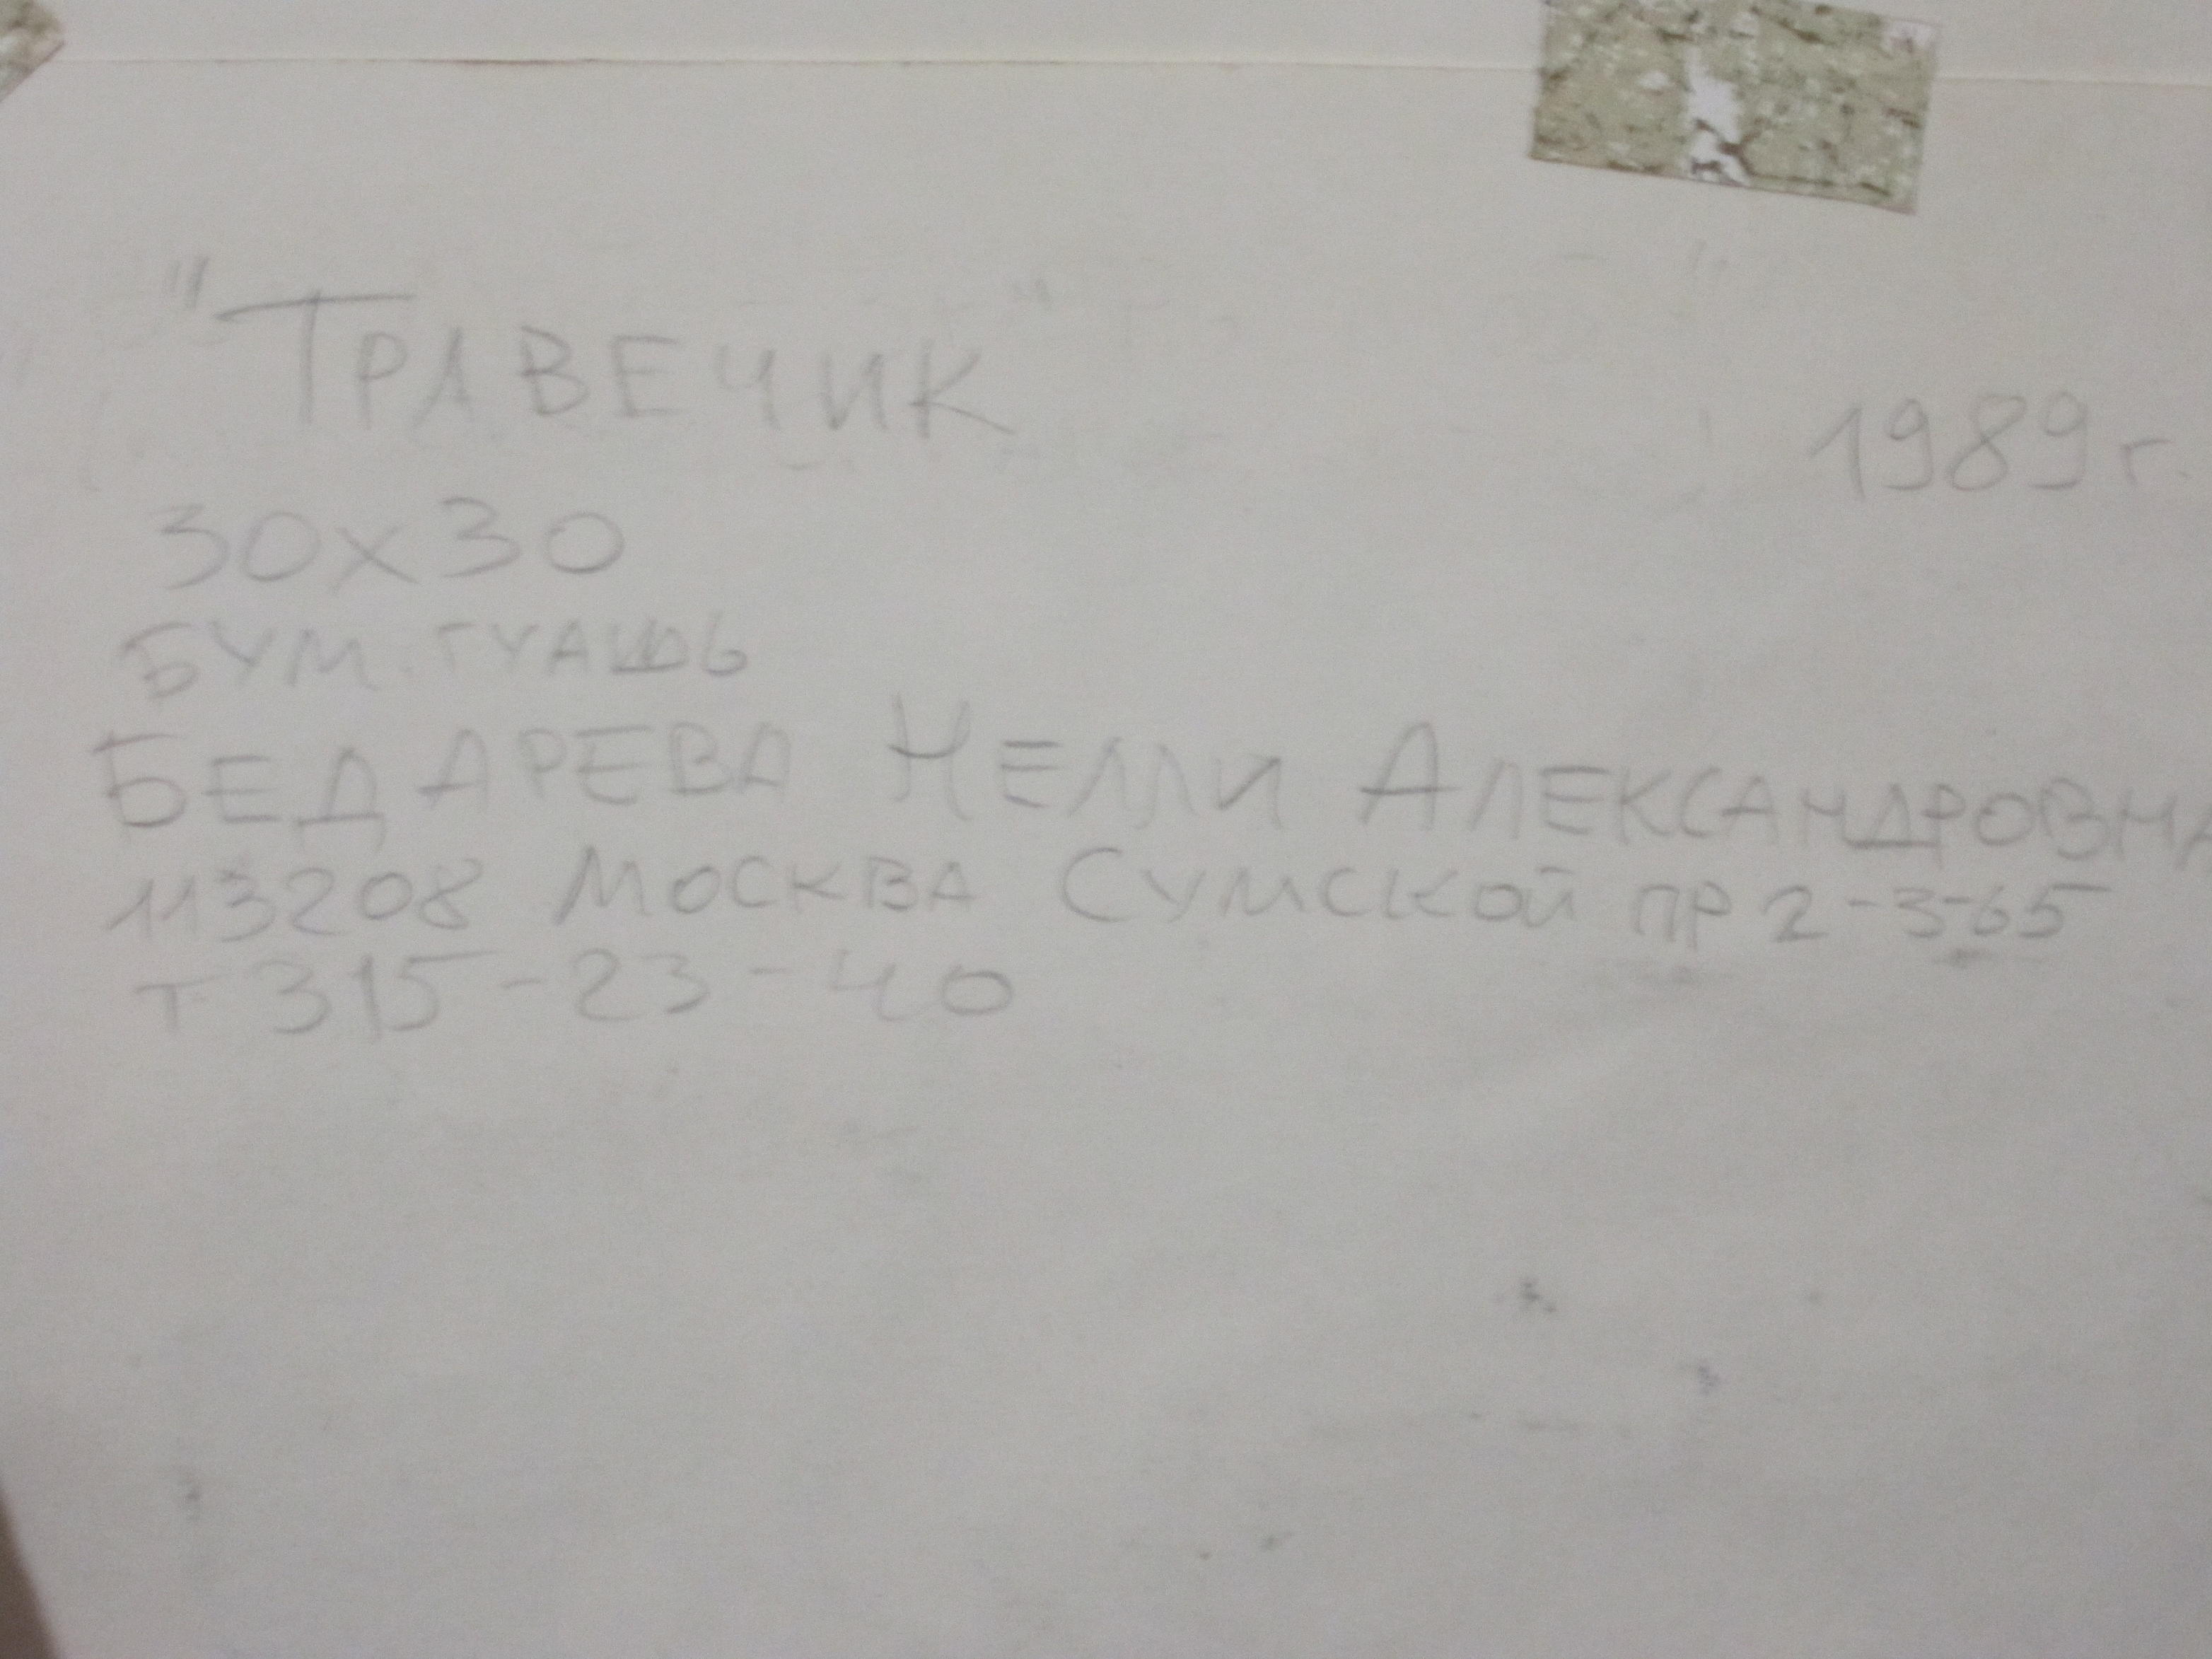 "ТРАВЕЧИК"
1989 г.
30х30
БУМ. ГУАШЬ
БЕДАРЕВА НЕЛЛИ АЛЕКСАНДРОВНА
113208 МОСКВА СУМСКОЙ ПР 2-3-65
Т 315-23-40